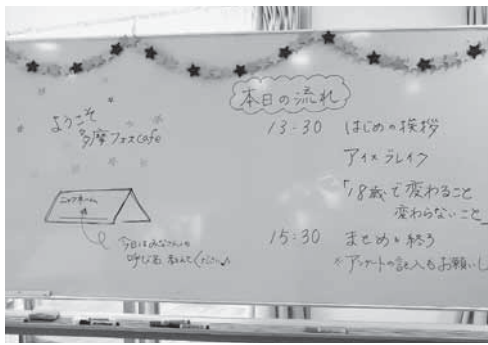 ようこそ
多摩フェスcafe
ニックネーム
今日はみなさんの
呼び名 教えてください♪
本日の流れ
13:30 はじめの挨拶
アイスブレイク
「18歳で変わること
変わらないこと」
15:30 まとめ&終了
※アンケートの記入もお願いし